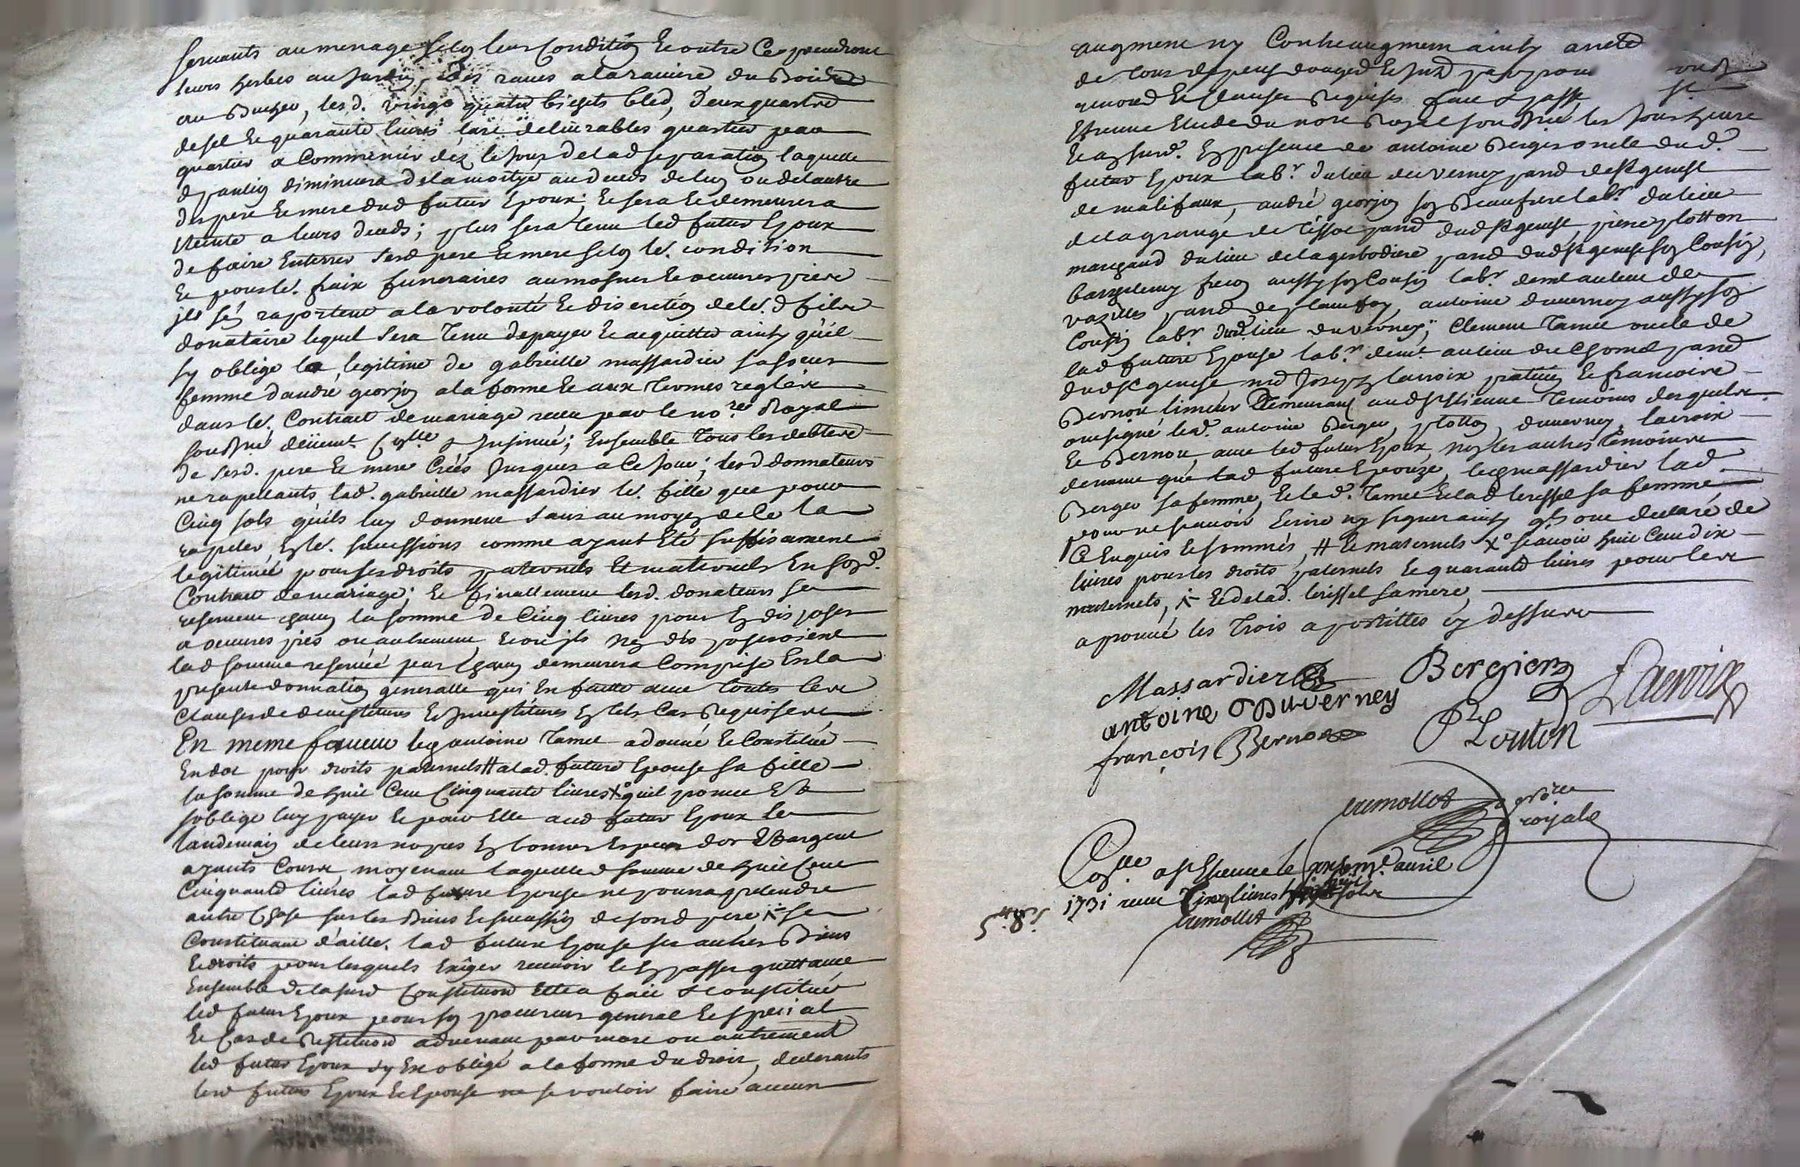 servants au menage selon leur Condition Et outre Ce prendront
leurs herbes au Jardin, des raves a la raviere du Bois
au Bucher, lesd. vingt quatre bichets bled, Deux quartes
de sel Et quarante livres lard delivrables quartier par
quartier a Commencer dez le Jour de lad separation laquelle
pention diminuera de la moitye au deceds de luy ou de lautre
des pere Et mere dud futur Epoux, Et sera Et demeurera
steinte a leurs deceds; plus sera tenu led futur Epoux
de faire Enterrer sesd pere Et mere selon led. condition
Et pour led. fraix funeraires aumosnes Et oeuvres pies
ils s'en raportent a la volonté Et discretion de led. d fils
donataire lequel sera Tenu de payer Et acquitter ainsy quil
sy oblige la legitime de gabrielle massardier sa soeur
femme dandré georjon a la forme Et aux Termes reglés
dans le. Contrat de mariage receu par le no.re Royal
souss.né deüemt C.ollé & Insinué; Ensemble Tous les debtes
de sesd. pere Et mere Créés Jusques a Ce Jour; lesd donnateurs
ne rapellants lad. gabrielle massardier led. fille que pour
Cinq sols qu'ils luy donnent sans au moyen de Ce la
rapeller En led. successions comme ayant Eté suffisament
legitimée pour ses droits paternels Et maternels En son d.
Contract de mariage; Et finallement lesd. donateurs se
reservent chacun la somme de Cinq livres pour En disposer
a oeuvres pies ou autrement, Et ou ils n'en disposeroient
lad somme reservée par chacun demeurera Comprise En la
presente donnation generalle qui En faitte avec toutes les
Clauses de devestitures Et Investitures En tels Cas Requises
En meme faveur led antoine Tamet a donné Et Constitué
En dot pour droits paternels # a lad. future Epouse sa fille
la somme de huit Cent Cinquante livres X° quil promet Et
soblige luy payer Et pour Elle aud futur Epoux le
landemain de leurs nopces En bonnes Especes dor & dargent
ayants Cours, moyenant laquelle d somme de huit Cent
Cinquante livres lad future Epouse ne pourra pretendre
autre Chose sur les Biens Et succession de sond pere ÷ se
Constituant d'aille. lad future Epouse ses autres Biens
Et droits pour lesquels Exiger recevoir Et En passer quittance
Ensemble de la susd Constitution Elle a fait & constitué
led futur Epoux pour son procureur general Et special
Et Cas de Restitution advenant par mort ou autrement
led futur Epoux sy Est obligé a la forme du droit, declarants
lesd futurs Epoux Et Epouse ne se vouloir faire aucun
augment ny Contre augment ainsy areté
de tous depens domages Et Int
renond Et Clauses Requises fait & passé
Estienne Etude du nore Royal sous.né les Jour heure
Et an susd. En presence de antoine Bergier oncle dud.
futur Epoux labr. du lieu du verney parr.e de St genest
de malifaux, andré georjon son Beaufrere labr du lieu
de la grange de Tissot parr.e dud St genest, piere plotton
marchand du lieu de la gerbodiere parr.e dud St genest son Cousin,
barthelemy freco aussy son Cousin labr demt au lieu de
vazilles parr.e de planfoy, antoine duverney aussy son
Cousin labr dud lieu du verney; Clement Tamet oncle de
lad future Epouse labr. demt au lieu du Chomel parr.e
dud St genest me Joseph lacroix praticien Et francois
Bernou limeur Demeurant aud St Etienne Temoins desquels
ont signé led. antoine Berger, plotton, duverney, lacroix
Et Bernou, avec led futur Epoux, non les autres Temoins
de meme que lad future Epouze, led massardier lad.
Berger sa femme, Et led. Tamet Et lad leyssel sa femme
pour ne sçavoir Ecrire ny signer ainsy qls ont declaré de
Ce Enquis Et sommés, # Et maternels X° sçavoir huit Cent dix
livres pour les droits paternels Et quarante livres pour les
maternels, ÷ Et de lad. leyssel sa mere,
aprouvé les Trois apostilles cy dessus
Massardier Bergier Lacroix
antoine Duverney
Pre Plouton
françois Bernou
tremollet nore royale
Collé a St Etienne le avril
1731 receu Cinq livres sols
tremollet